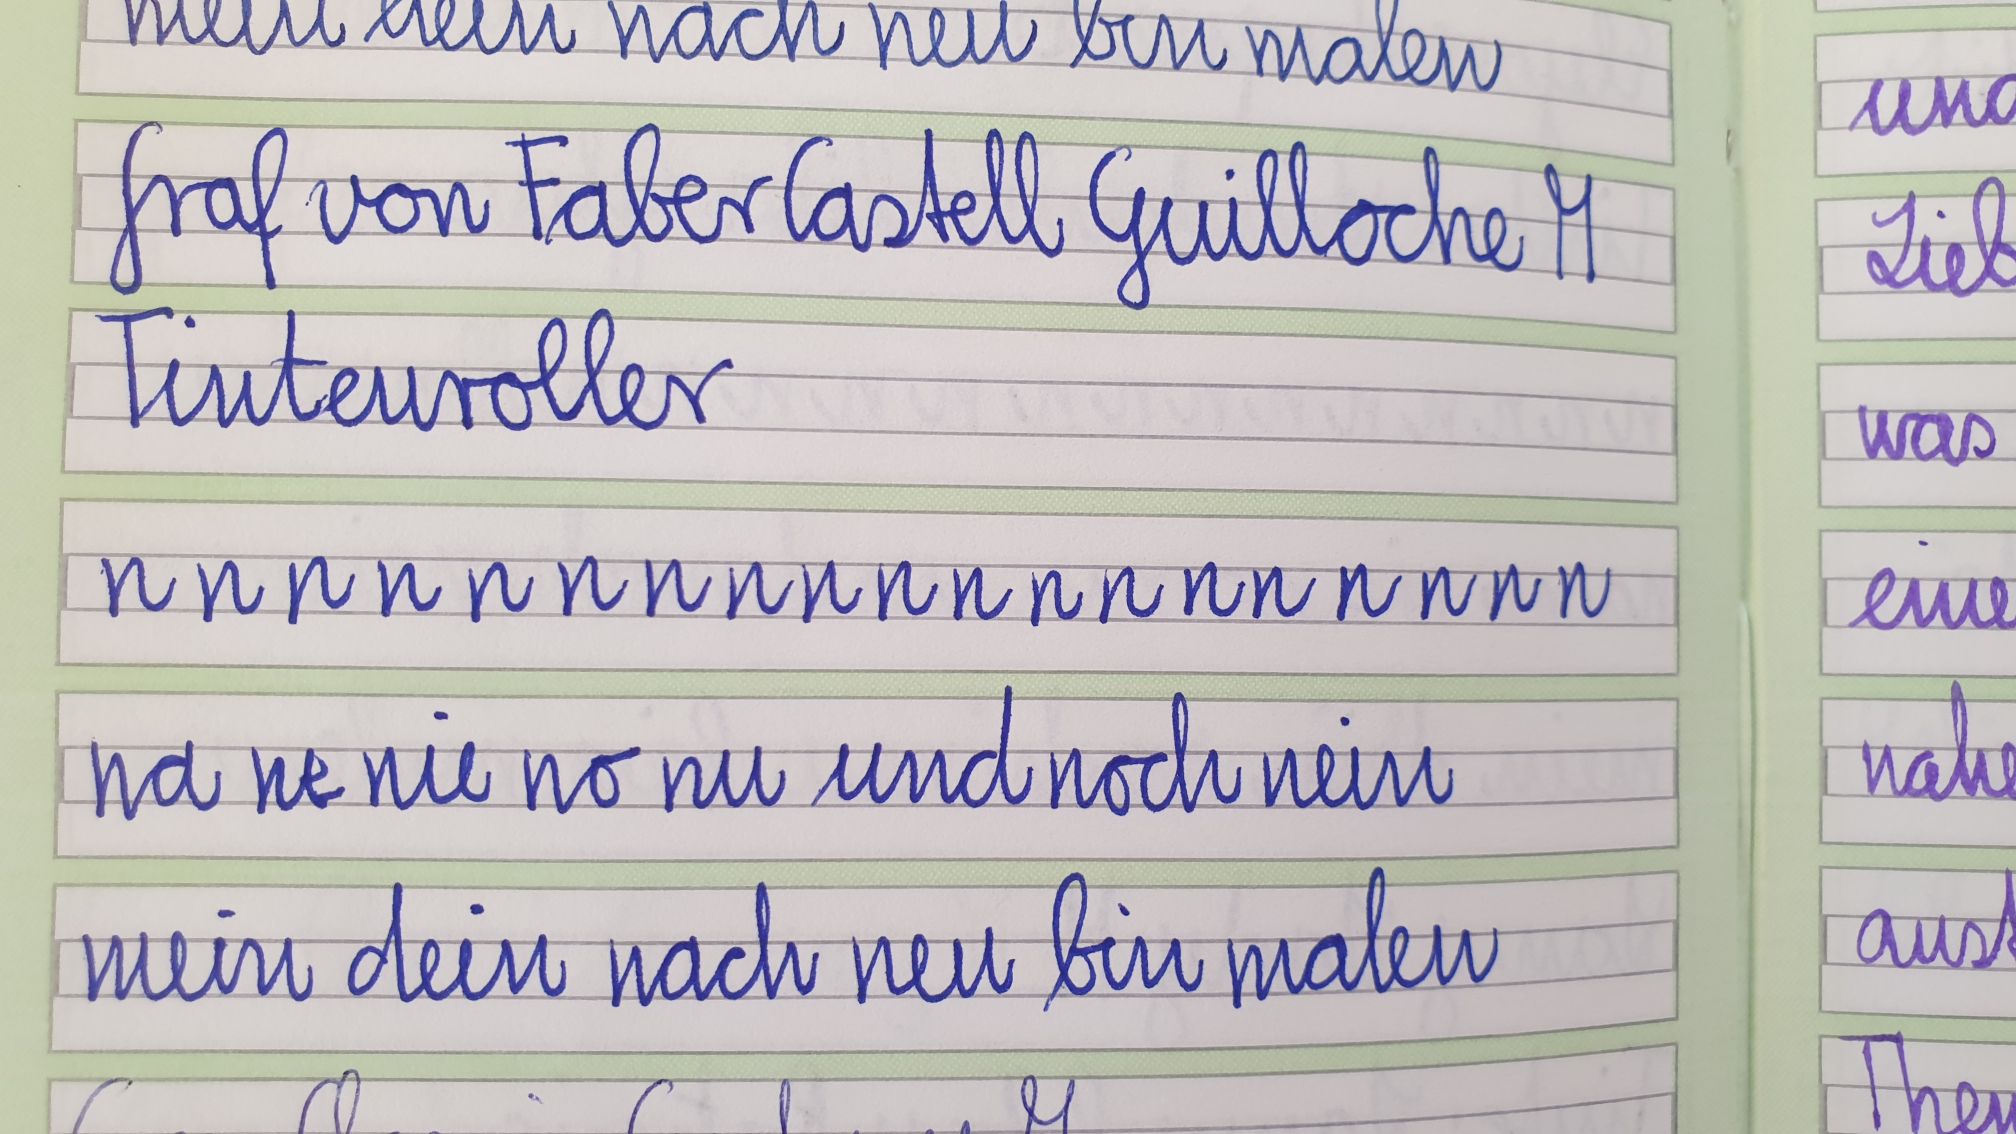 mein dein nach neu bin malen
Graf von Faber Castell Guilloche M
Tintenroller
n n n n n n n n n n n n n n n n n n n
na ne nie no nu und noch nein
mein dein nach neu bin malen
und
Lieb
was
eine
nahe
aust
Them